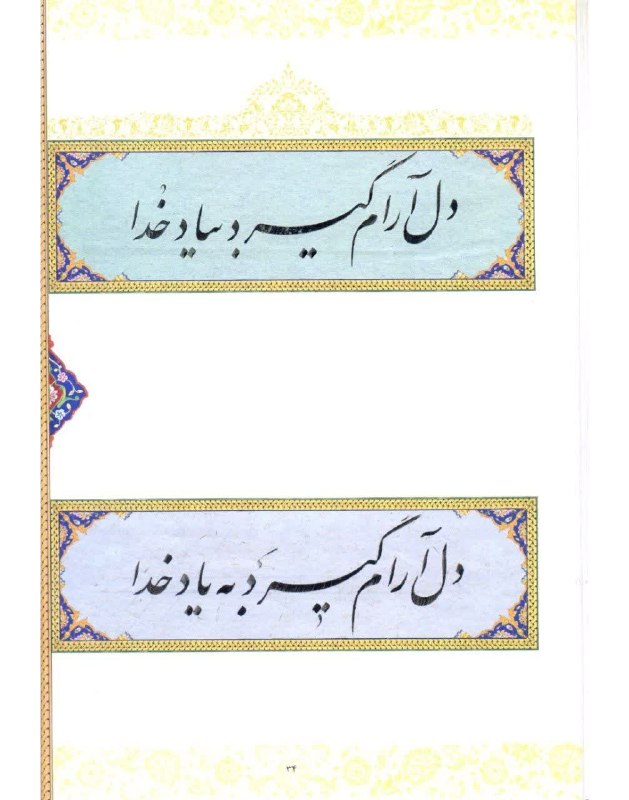 دل آرام گیرد بیاد خدا
دل آرام گیرد به یاد خدا
۳۴